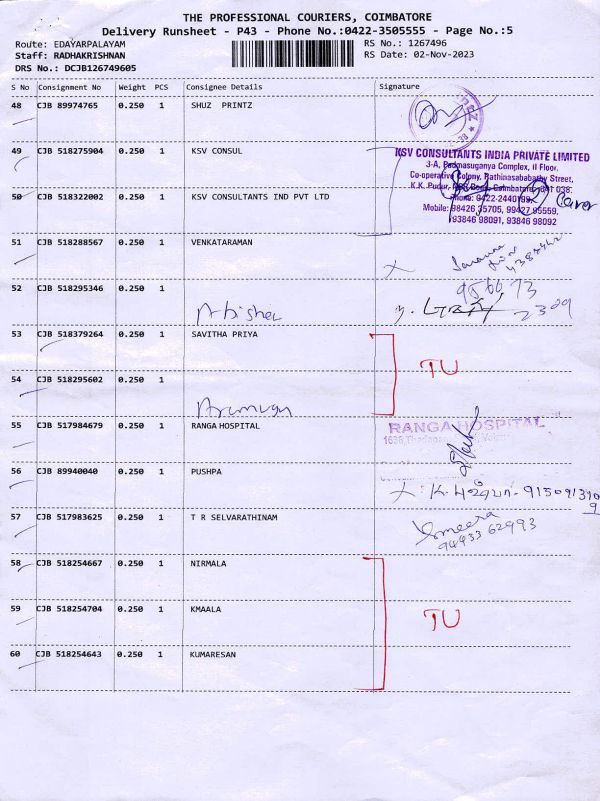 THE PROFESSIONAL COURIERS, COIMBATORE
Delivery Runsheet - P43 - Phone No.:0422-3505555 - Page No.:5
Route: EDAYARPALAYAM RS No.: 1267496
Staff: RADHAKRISHNAN RS Date: 02-Nov-2023
DRS No.: DCJB126749605
S No Consignment No Weight PCS Consignee Details Signature
48 CJB 89974765 0.250 1 SHUZ PRINTZ
49 CJB 518275904 0.250 1 KSV CONSUL
KSV CONSULTANTS INDIA PRIVATE LIMITED
3-A, Padmasuganya Complex, II Floor,
Co-operative Colony, Rathinasababathy Street,
K.K. Pudur, Coimbatore 641 038.
50 CJB 518322002 0.250 1 KSV CONSULTANTS IND PVT LTD
Phone: 0422-2440199
Mobile: 98426 35705, 99427 95559,
93846 98091, 93846 98092
51 CJB 518288567 0.250 1 VENKATARAMAN
52 CJB 518295346 0.250 1
Abishek
53 CJB 518379264 0.250 1 SAVITHA PRIYA
TU
54 CJB 518295602 0.250 1
Arumuga
55 CJB 517984679 0.250 1 RANGA HOSPITAL
RANGA HOSPITAL
56 CJB 89940040 0.250 1 PUSHPA
57 CJB 517983625 0.250 1 T R SELVARATHINAM
94933 62993
58 CJB 518254667 0.250 1 NIRMALA
59 CJB 518254704 0.250 1 KMAALA
TU
60 CJB 518254643 0.250 1 KUMARESAN